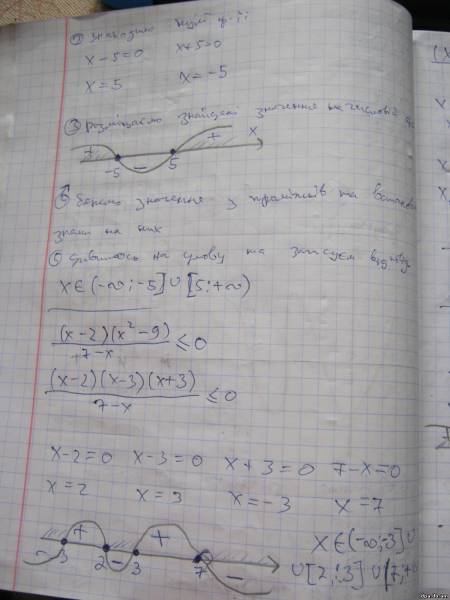 ① Знаходимо нулі ф-ії
x-5=0 x+5=0
x=5 x=-5
③ Розміщаємо знайдені значення на числовій
+ - + x
-5 5
значення з проміжків та
знаки на них
⑤ Дивимось на умову та записуєм відповідь
x∈(-∞;-5]∪[5;+∞)
(x-2)(x²-9)
7-x ≤0
(x-2)(x-3)(x+3)
7-x ≤0
x-2=0 x-3=0 x+3=0 7-x=0
x=2 x=3 x=-3 x=7
- + - + -
3 2 3 7
x∈(-∞;-3]∪
∪[2;3]∪(7;+